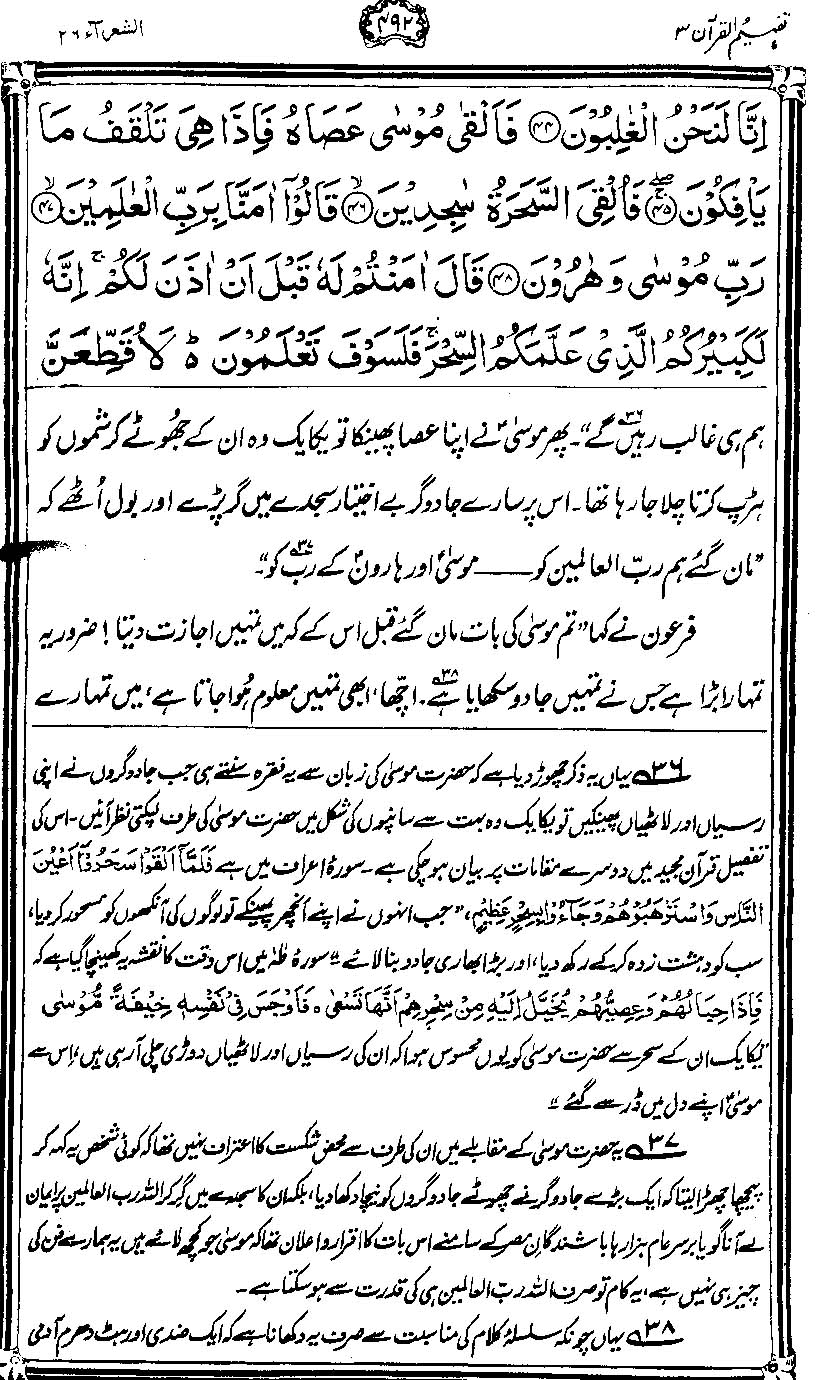 تفہیم القرآن ۳
۴۹۲
الشعراء ۲۶
اِنَّا لَنَحْنُ الْغٰلِبُوْنَ ﴿۴۴﴾ فَاَلْقٰى مُوْسٰى عَصَاهُ فَاِذَا هِىَ تَلْقَفُ مَا
يَاْفِكُوْنَ ﴿۴۵﴾ فَاُلْقِىَ السَّحَرَةُ سٰجِدِيْنَ ﴿۴۶﴾ قَالُوْۤا اٰمَنَّا بِرَبِّ الْعٰلَمِيْنَ ﴿۴۷﴾
رَبِّ مُوْسٰى وَهٰرُوْنَ ﴿۴۸﴾ قَالَ اٰمَنْتُمْ لَهٗ قَبْلَ اَنْ اٰذَنَ لَكُمْ ۚ اِنَّهٗ
لَكَبِيْرُكُمُ الَّذِىْ عَلَّمَكُمُ السِّحْرَ ۚ فَلَسَوْفَ تَعْلَمُوْنَ ؕ لَاُ قَطِّعَنَّ
ہم ہی غالب رہیں گے“۳۶۔ پھر موسیٰؑ نے اپنا عصا پھینکا تو یکایک وہ ان کے جھوٹے کرشموں کو
ہڑپ کرتا چلا جا رہا تھا۔ اس پر سارے جادوگر بے اختیار سجدے میں گر پڑے اور بول اُٹھے کہ
”مان گئے ہم ربّ العالمین کو ——— موسیٰؑ اور ہارونؑ کے رب۳۷ کو“۔
فرعون نے کہا ”تم موسیٰ کی بات مان گئے قبل اس کے کہ میں تمہیں اجازت دیتا! ضرور یہ
تمہارا بڑا ہے جس نے تمہیں جادو سکھایا ہے۳۸۔ اچھا، ابھی تمہیں معلوم ہُوا جاتا ہے، میں تمہارے
۳۶ یہاں یہ ذکر چھوڑ دیا ہے کہ حضرت موسیٰ کی زبان سے یہ فقرہ سنتے ہی جب جادوگروں نے اپنی
رسیاں اور لاٹھیاں پھینکیں تو یکایک وہ بہت سے سانپوں کی شکل میں حضرت موسیٰ کی طرف لپکتی نظر آئیں۔ اس کی
تفصیل قرآن مجید میں دوسرے مقامات پر بیان ہو چکی ہے۔ سورۂ اعراف میں ہے فَلَمَّاۤ اَلْقَوْا سَحَرُوْۤا اَعْيُنَ
النَّاسِ وَاسْتَرْهَبُوْهُمْ وَجَآءُوْ بِسِحْرٍ عَظِيْمٍ، ”جب انہوں نے اپنے انچھر پھینکے تو لوگوں کی آنکھوں کو مسحور کر دیا،
سب کو دہشت زدہ کر کے رکھ دیا، اور بڑا بھاری جادو بنا لائے“ سورۂ طٰہٰ میں اس وقت کا نقشہ یہ کھینچا گیا ہے کہ
فَاِذَا حِبَالُهُمْ وَعِصِيُّهُمْ يُخَيَّلُ اِلَيْهِ مِنْ سِحْرِهِمْ اَنَّهَا تَسْعٰى ۰ فَاَوْجَسَ فِىْ نَفْسِهٖ خِيْفَةً مُّوْسٰى
”یکایک ان کے سحر سے حضرت موسیٰ کو یوں محسوس ہوا کہ ان کی رسیاں اور لاٹھیاں دوڑی چلی آ رہی ہیں، اس سے
موسیٰؑ اپنے دل میں ڈر سے گئے“۔
۳۷ یہ حضرت موسیٰ کے مقابلے میں ان کی طرف سے محض شکست کا اعتراف نہیں تھا کہ کوئی شخص یہ کہہ کر
پیچھا چھڑا لیتا کہ ایک بڑے جادوگر نے چھوٹے جادوگروں کو نیچا دکھا دیا، بلکہ ان کا سجدے میں گر کر اللہ رب العالمین پر ایمان
لے آنا گویا برسر عام ہزارہا باشندگان مصر کے سامنے اس بات کا اقرار و اعلان تھا کہ موسیٰ جو کچھ لائے ہیں یہ ہمارے فن کی
چیز ہی نہیں ہے، یہ کام تو صرف اللہ ربّ العالمین ہی کی قدرت سے ہو سکتا ہے۔
۳۸ یہاں چونکہ سلسلۂ کلام کی مناسبت سے صرف یہ دکھانا ہے کہ ایک ضدی اور ہٹ دھرم آدمی